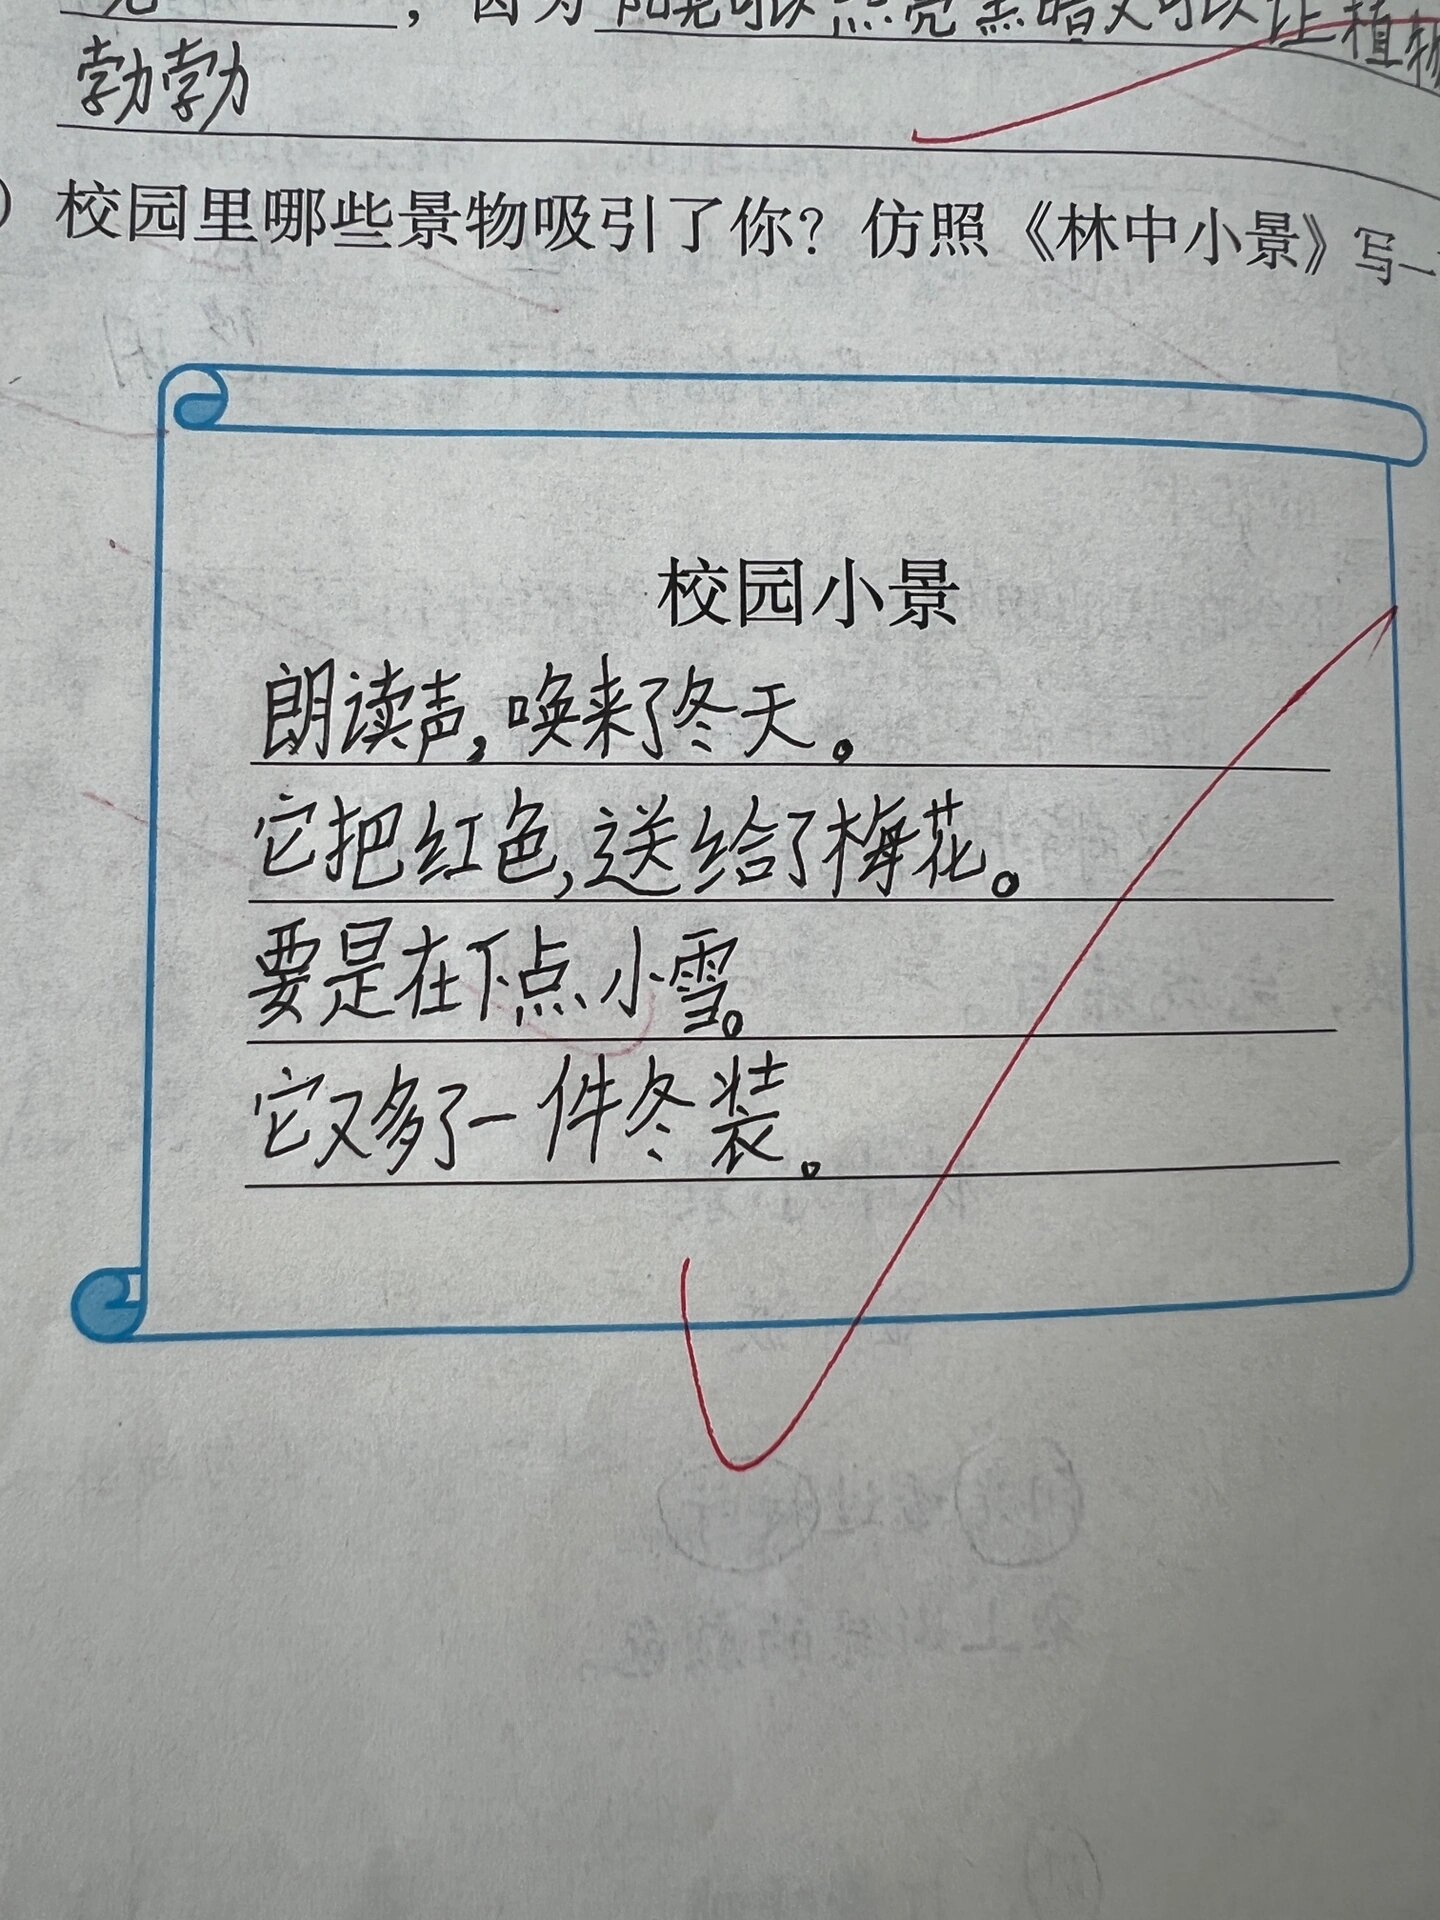 ，因为阳光可以点亮黑暗又可以让植物
勃勃
）校园里哪些景物吸引了你？仿照《林中小景》写一
校园小景
朗读声，唤来了冬天。
它把红色，送给了梅花。
要是在下点小雪。
它又多了一件冬装。